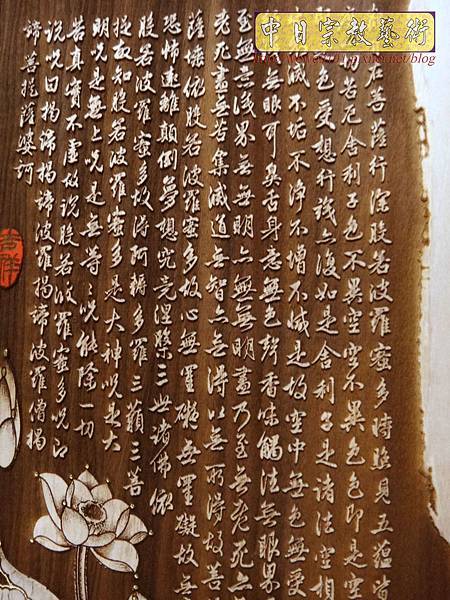 中日宗教藝術
菩薩行深般若波羅蜜多時照見五蘊皆
苦厄舍利子色不異空空不異色色即是空
色受想行識亦復如是舍利子是諸法空相
滅不垢不淨不增不減是故空中無色無受
無眼耳鼻舌身意無色聲香味觸法無眼界
至無意識界無無明亦無無明盡乃至無老死亦無
老死盡無苦集滅道無智亦無得以無所得故菩
薩埵依般若波羅蜜多故心無罣礙無罣礙故無
恐怖遠離顛倒夢想究竟涅槃三世諸佛依
般若波羅蜜多故得阿耨多羅三藐三菩
提故知般若波羅蜜多是大神咒是大
明咒是無上咒是無等等咒能除一切
苦真實不虛故說般若波羅蜜多咒即
說咒曰揭諦揭諦波羅揭諦波羅僧揭
諦菩提薩婆訶
吉祥